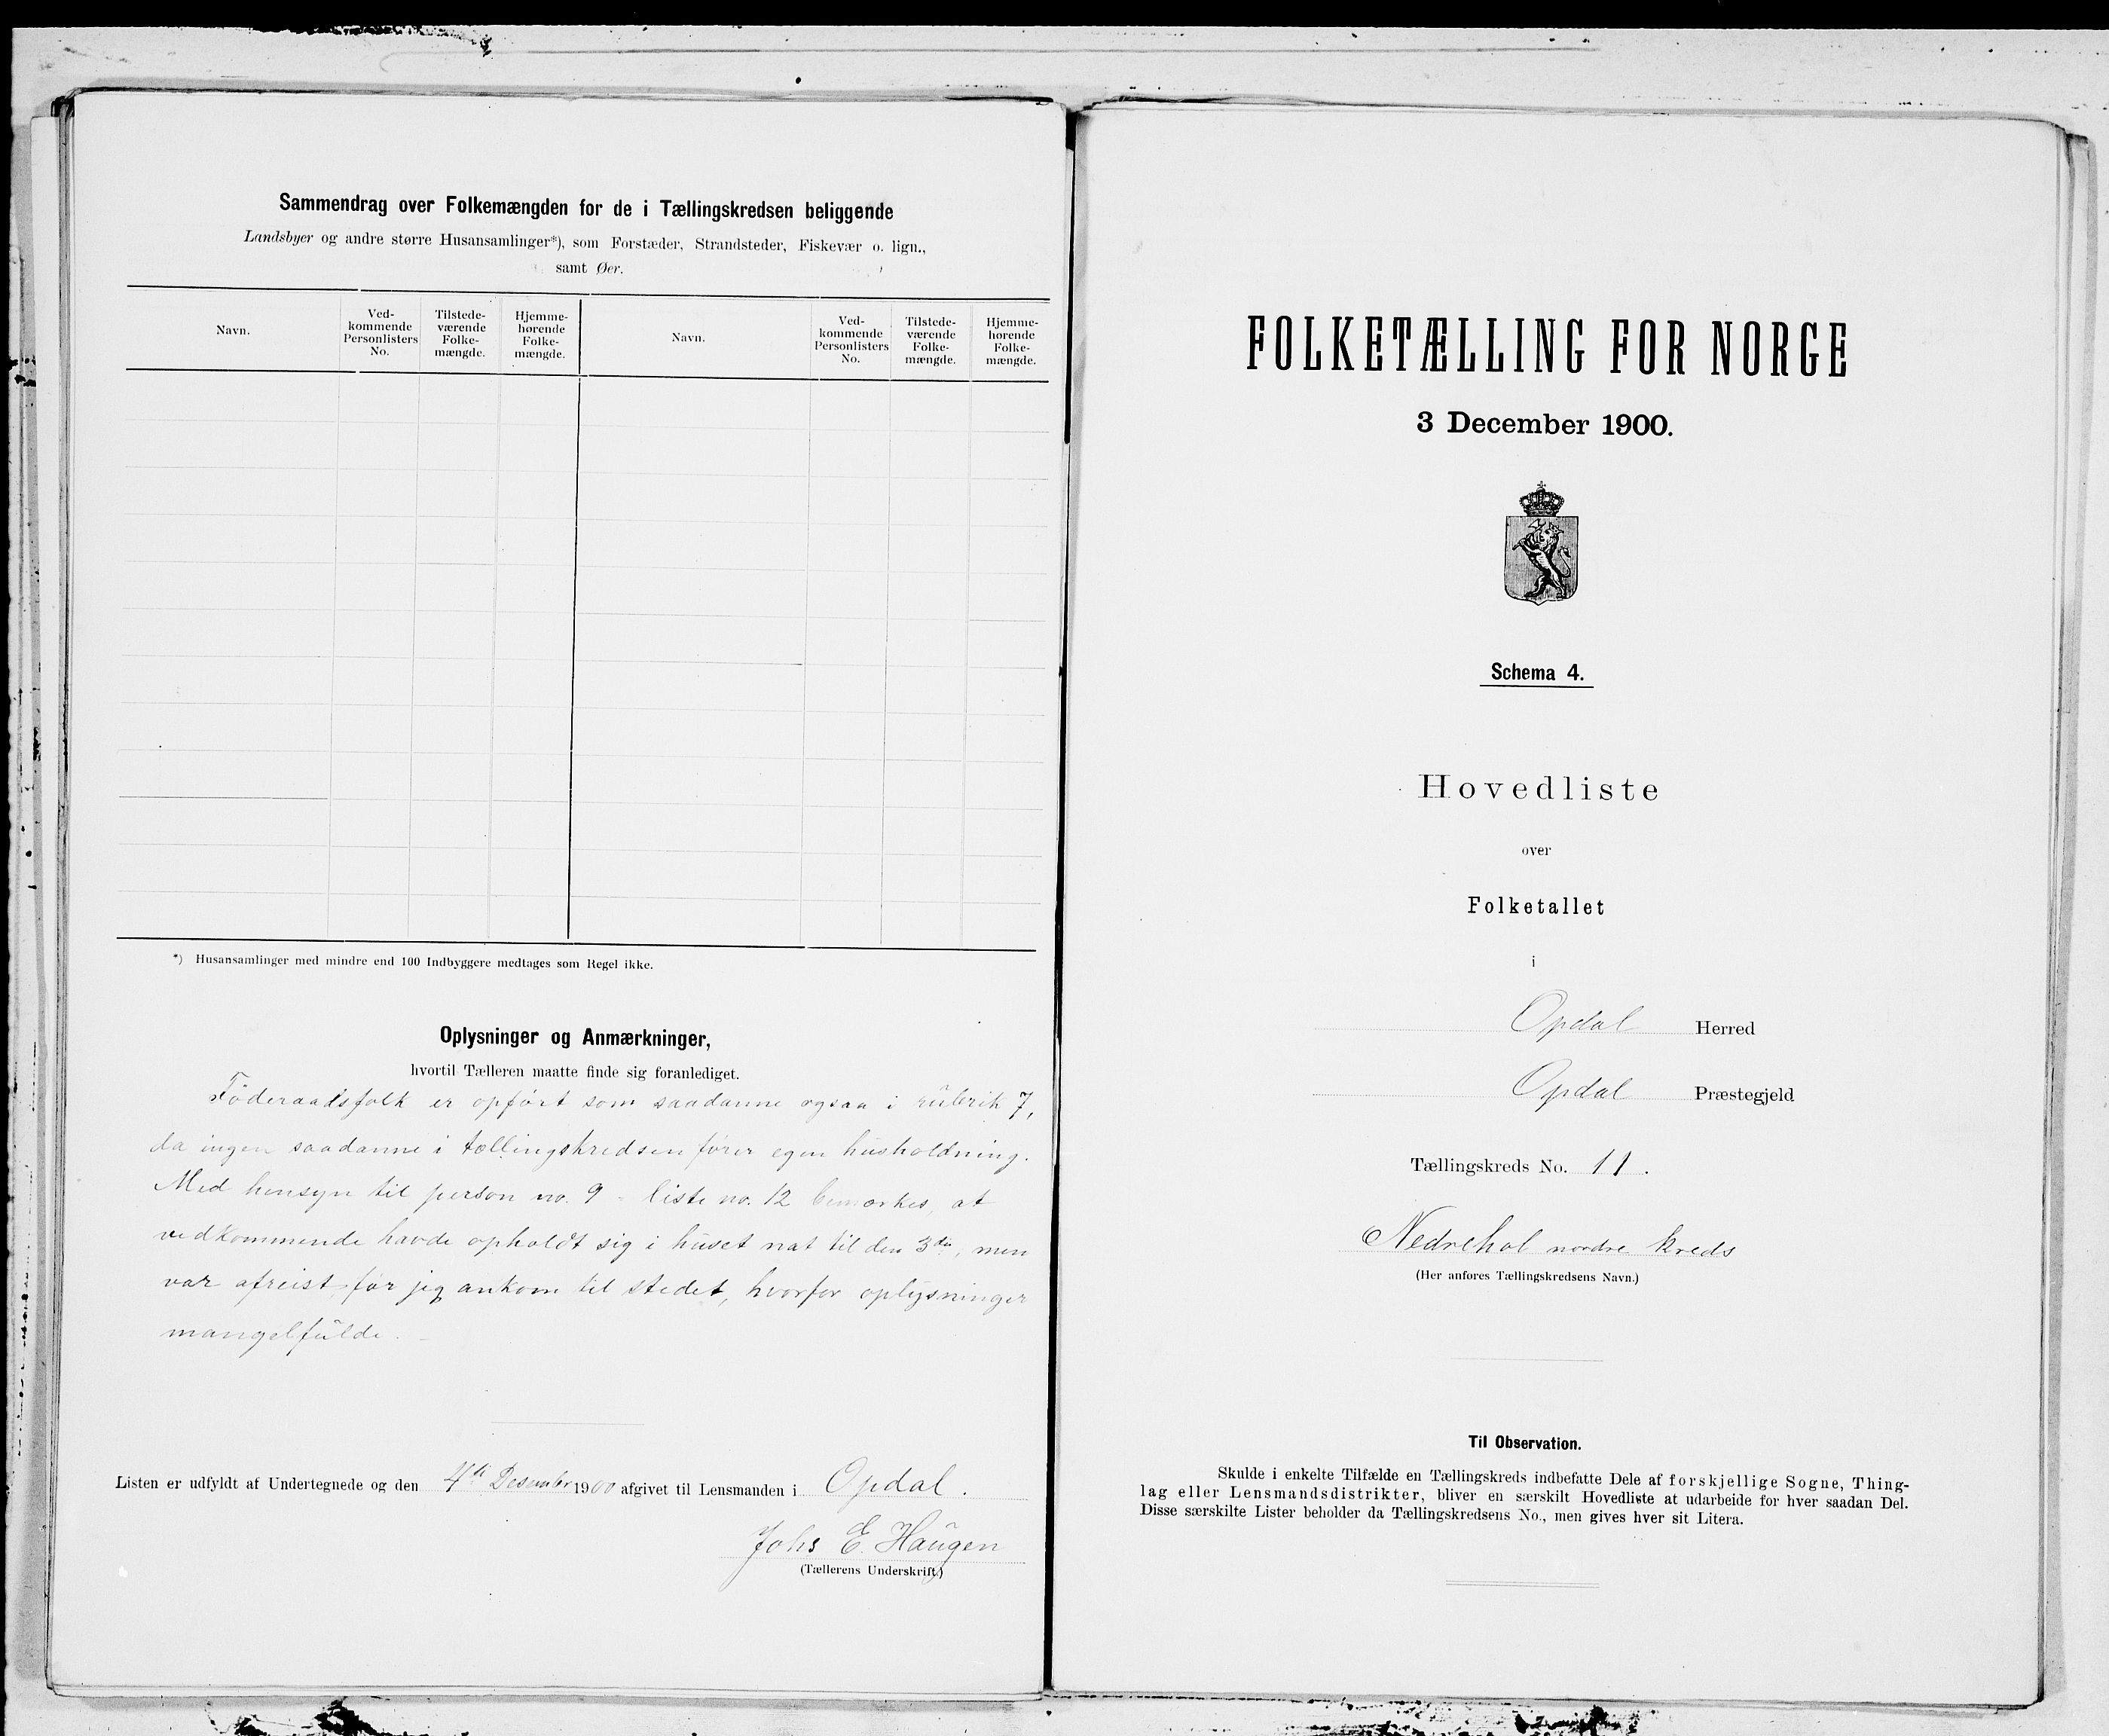 Sammendrag over Folkemængden for de i Tællingskredsen beliggende
Landsbyer og andre større Husansamlinger*), som Forstæder, Strandsteder, Fiskevær o. lign.,
samt Øer.
Navn.
Ved-
kommende
Personlisters
No.
Tilstede-
værende
Folke-
mængde.
Hjemme-
hørende
Folke-
mængde.
Navn.
Ved-
kommende
Personlisters
No.
Tilstede-
værende
Folke-
mængde.
Hjemme-
hørende
Folke-
mængde.
*) Husansamlinger med mindre end 100 Indbyggere medtages som Regel ikke.
Oplysninger og Anmærkninger,
hvortil Tælleren maatte finde sig foranlediget.
Föderaadsfolk er opført som saadanne ogsaa i rubrik 7,
da ingen saadanne i tællingskredsen fører egen husholdning.
Med hensyn til person no. 9 - liste no. 12 bemærkes, at
vedkommende havde opholdt sig i huset nat til den 3die, men
var afreist før jeg ankom til stedet, hvorfor oplysninger
mangelfulde.
Listen er udfyldt af Undertegnede og den 4de Desember 1900 afgivet til Lensmanden i Opdal.
Johs E. Haugen
(Tællerens Underskrift.)
FOLKETÆLLING FOR NORGE
3 December 1900.
Schema 4.
Hovedliste
over
Folketallet
i
Opdal Herred
Opdal Præstegjeld
Tællingskreds No. 11.
Nedrehol nordre kreds
(Her anføres Tællingskredsens Navn.)
Til Observation.
Skulde i enkelte Tilfælde en Tællingskreds indbefatte Dele af forskjellige Sogne, Thing-
lag eller Lensmandsdistrikter, bliver en særskilt Hovedliste at udarbeide for hver saadan Del.
Disse særskilte Lister beholder da Tællingskredsens No., men gives hver sit Litera.